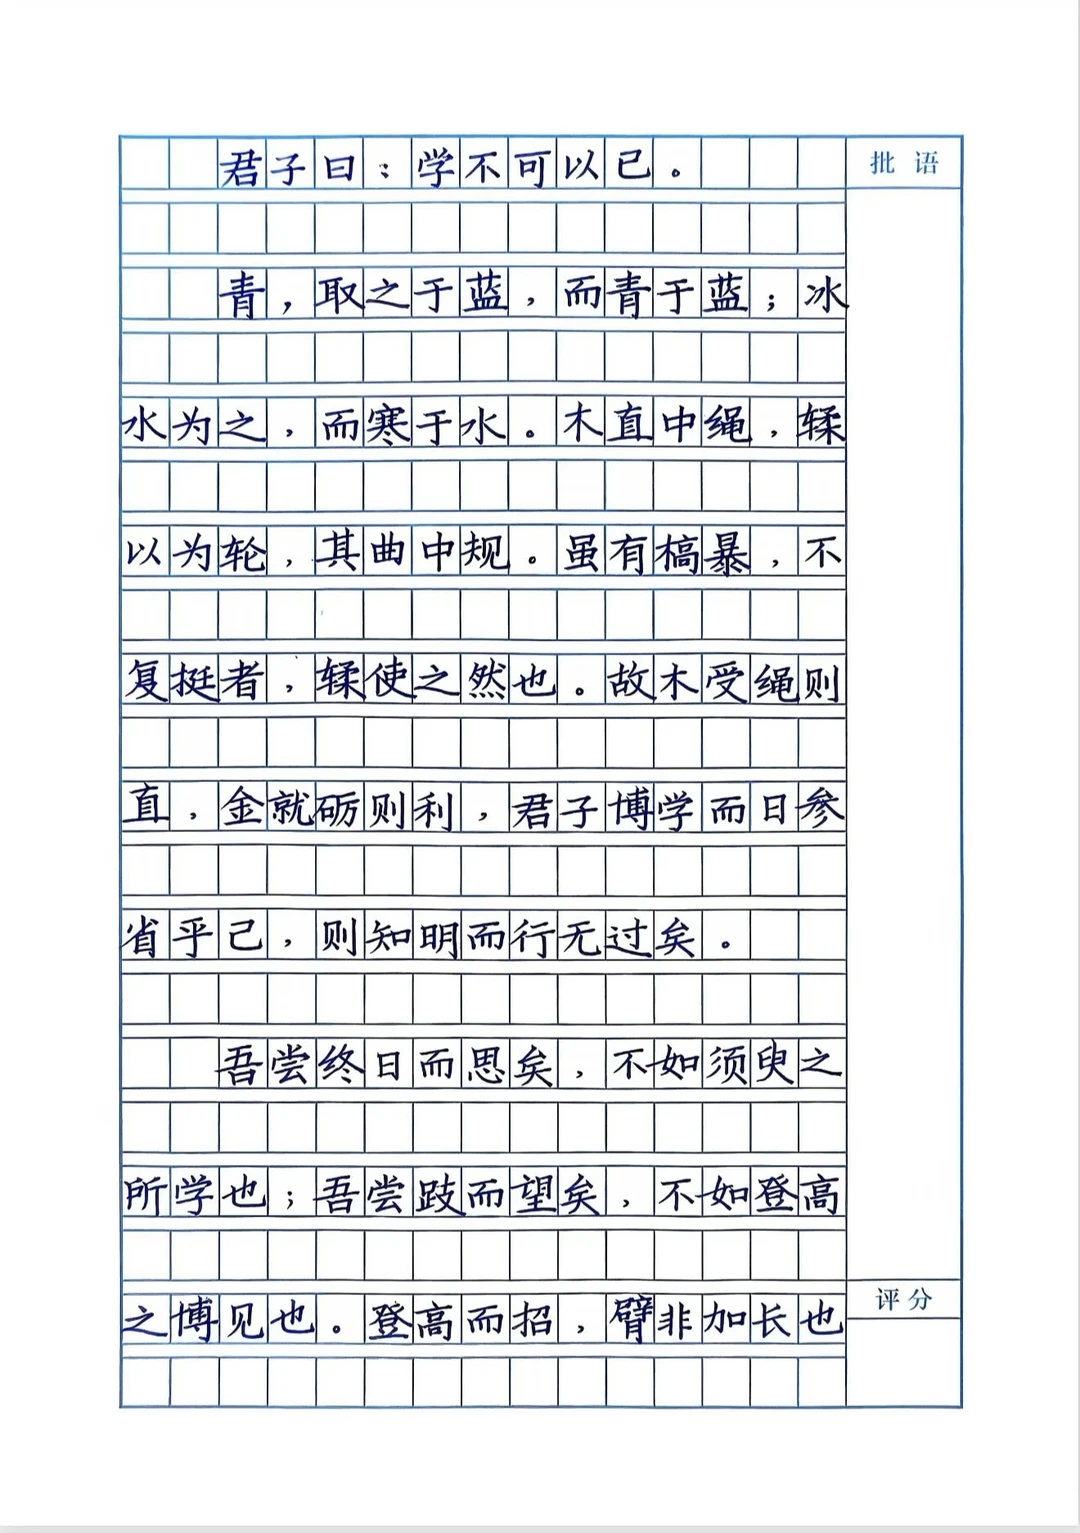 君子曰：学不可以已。
批语
青，取之于蓝，而青于蓝；冰
水为之，而寒于水。木直中绳，輮
以为轮，其曲中规。虽有槁暴，不
复挺者，輮使之然也。故木受绳则
直，金就砺则利，君子博学而日参
省乎己，则知明而行无过矣。
吾尝终日而思矣，不如须臾之
所学也；吾尝跂而望矣，不如登高
之博见也。登高而招，臂非加长也
评分